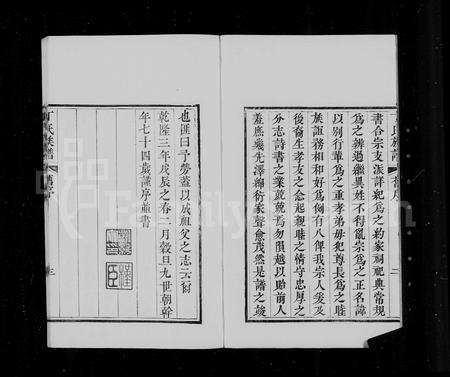 書合宗支派詳紀爲之約家祠祀典常規
爲之辨過繼異姓不得亂宗爲之正名諱
以別行輩爲之重孝友毋犯尊長爲之睦
族誼務相和好爲倘有八俾我宗人爰及
後裔生孝友之念起親睦之情守忠厚之
分志詩書之業兢兢焉勿隕越以貽前人
羞庶幾先澤綿衍家聲愈茂然是譜之竣
丁氏族譜
舊序
二
也匪曰予勞蓋以成祖父之志云爾
乾隆三年戊辰之春二月穀旦九世朝幹
年七十四歲謹序並書
丁氏族譜
舊序
三
Family